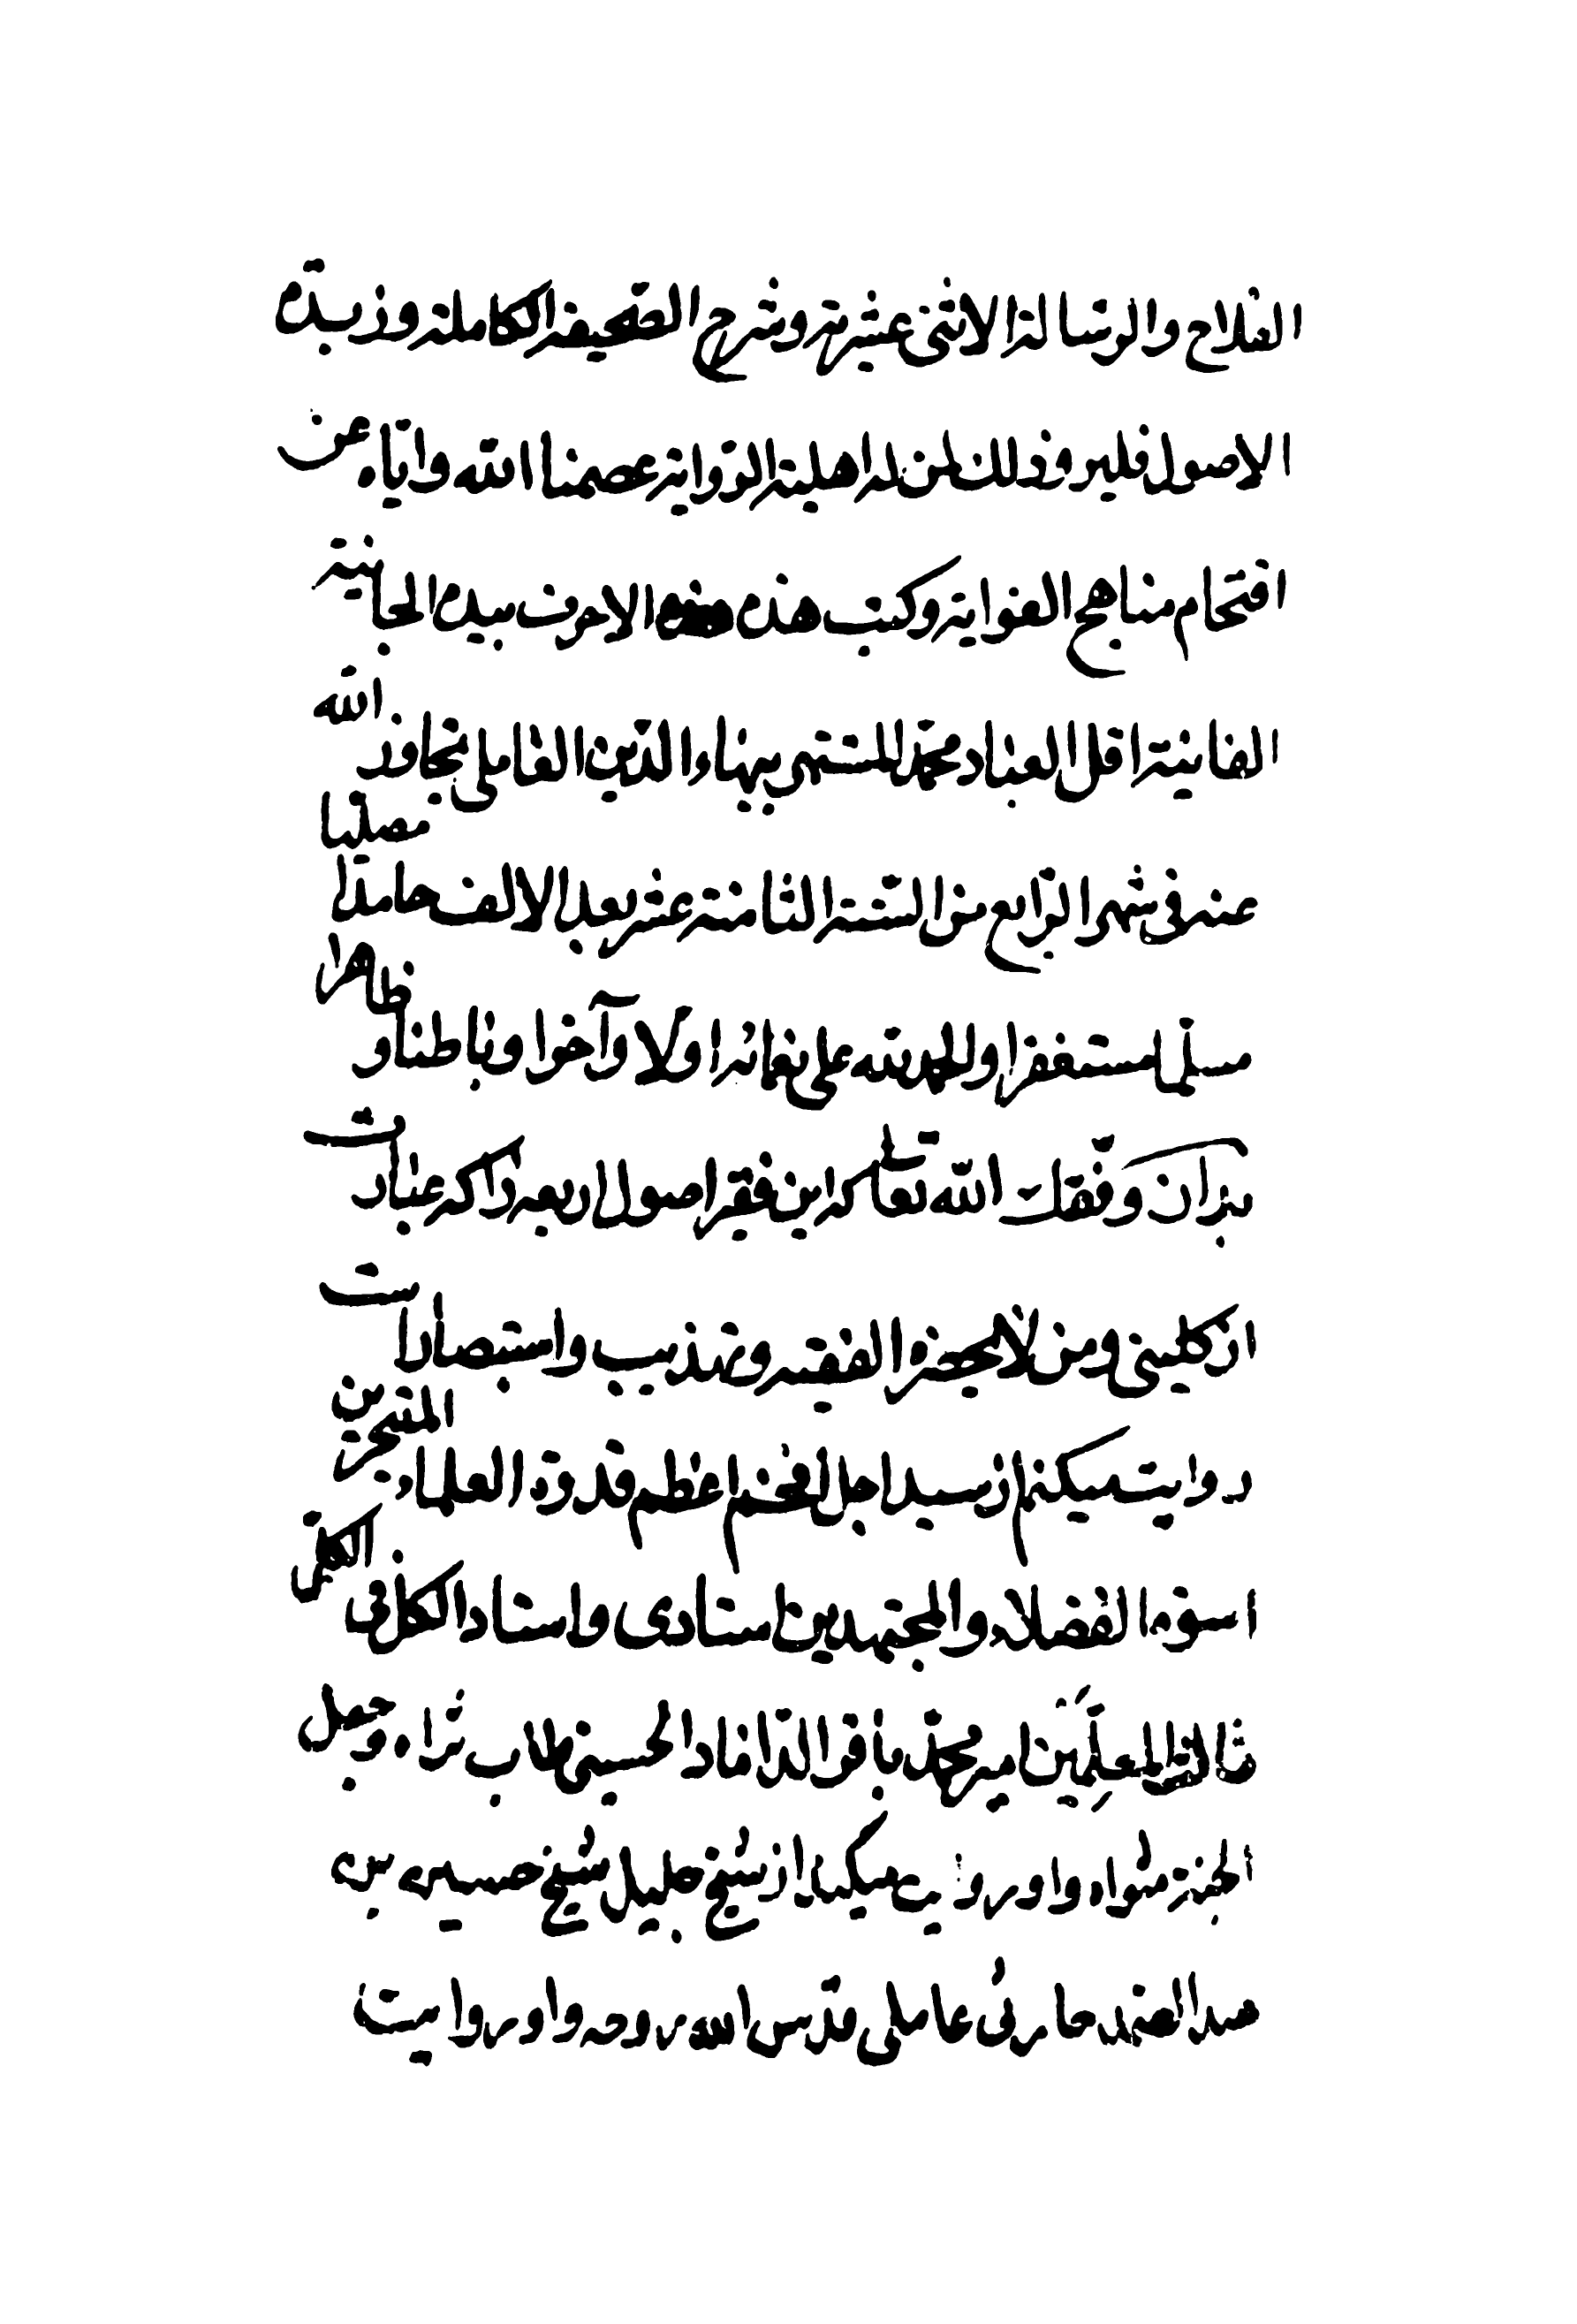 الفلاح والرسالة الاثنى عشرية وشرح الصّحيفة الكاملة وزبدة
الاصول فليرو ذلك لمن له اهلية الرّواية عصمنا الله وايّاه عن
اقتحام مناهج الغواية وكتب هذه الاحرف بيده الجانية
الفانية اقل العباد محمّد المشتهر ببهاء الدّين العاملي تجاوز الله
عنه في شهر الرّابع من السّنة الثامنة عشر بعد الالف حامدا مصليا
مسلما مستغفرا والحمد لله على نعمائه اولا وآخرا وباطنا و ظاهرا
بدان وفّقك الله تعا كه اين فقير اصول اربعه را كه عبارتست
از كليني ومن لا يحضره الفقيه وتهذيب واستبصار است
روايت ميكنم از سيد اجل افخم اعظم قدوة العلماء المتبحرين
اسوة الفضلاء والمجتهدين استادى واستاد الكل في الكل
ثالث المعلمَين امير محمّد باقر الدّاماد الحسيني طاب ثراه وجعل
الجنة مثواه واو روايت ميكند از شيخ جليل شيخ حسين بن
عبد الصمد حارثى عاملى قدّس الله روحه واو روايت